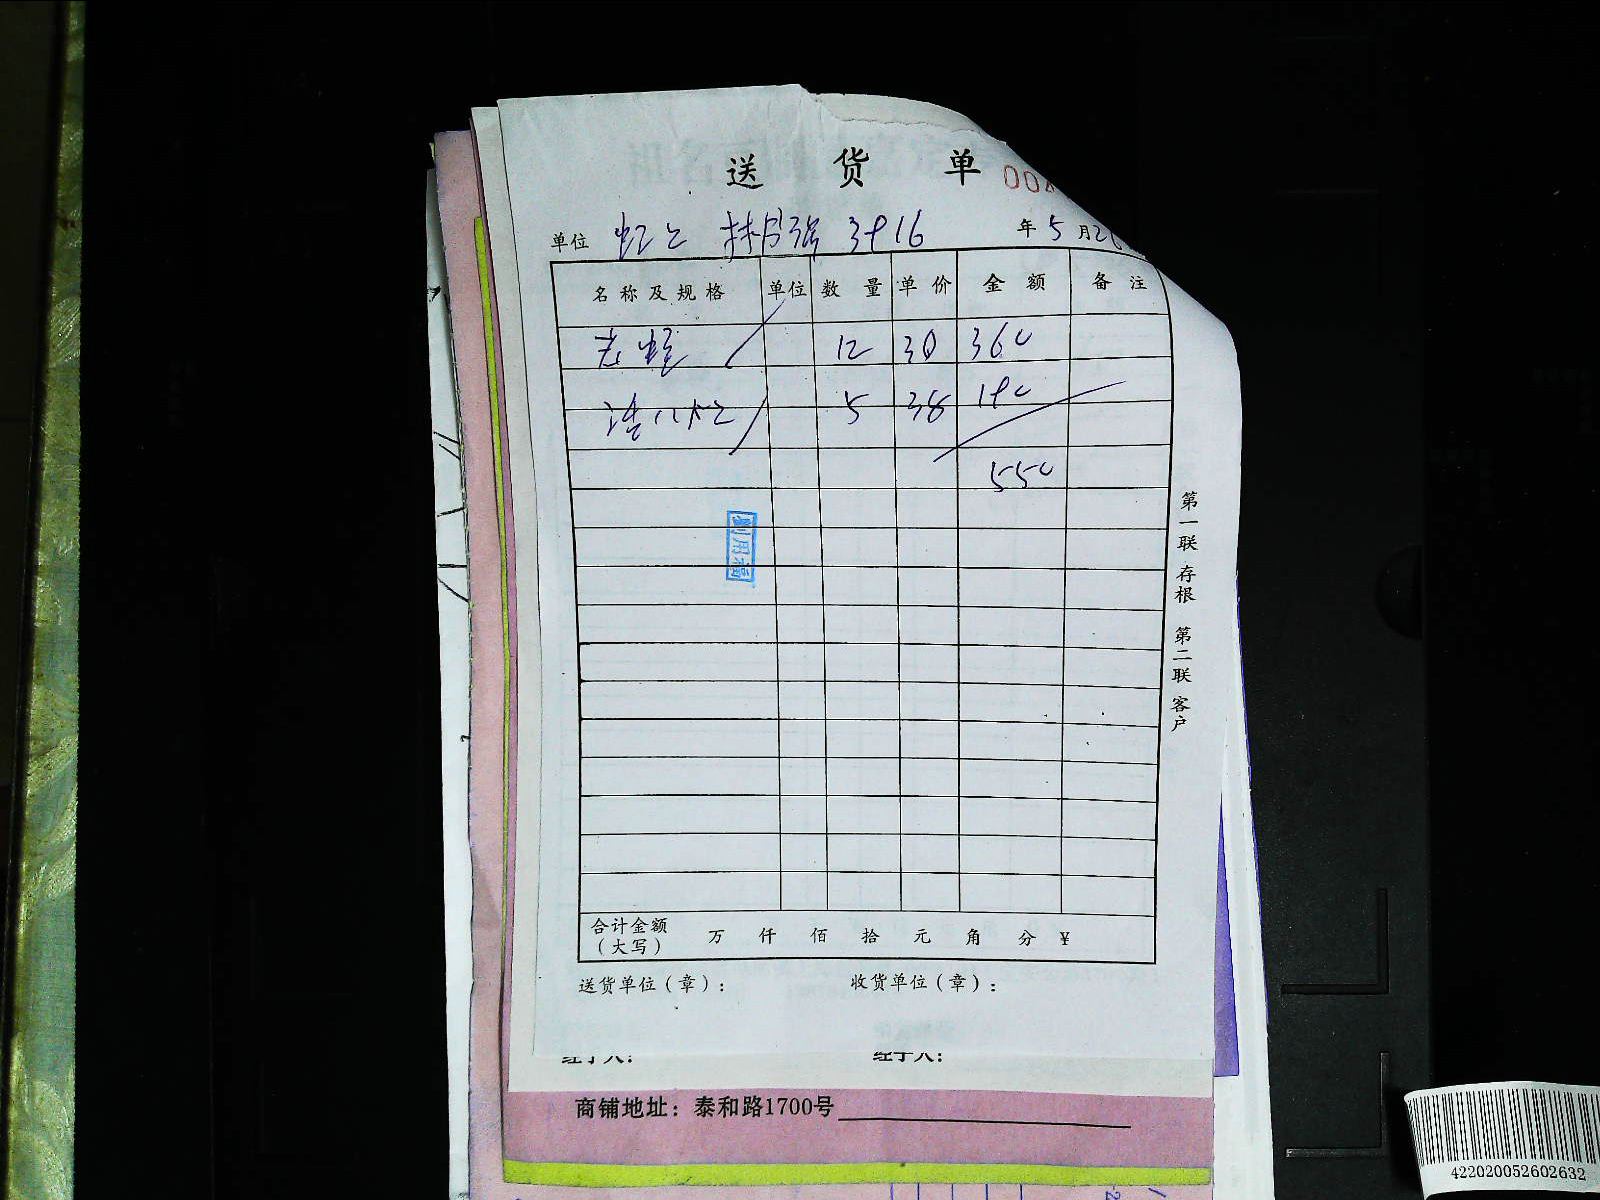 送 货 单 00
单位 虹上 林昌强 3916 年 5 月 26
名称及规格 单位 数量 单价 金额 备注
12 30 360
5 38 190
550
第一联 存根 第二联 客户
合计金额（大写） 万 仟 佰 拾 元 角 分 ¥
送货单位（章）： 收货单位（章）：
经手人： 经手人：
商铺地址：泰和路1700号
422020052602632